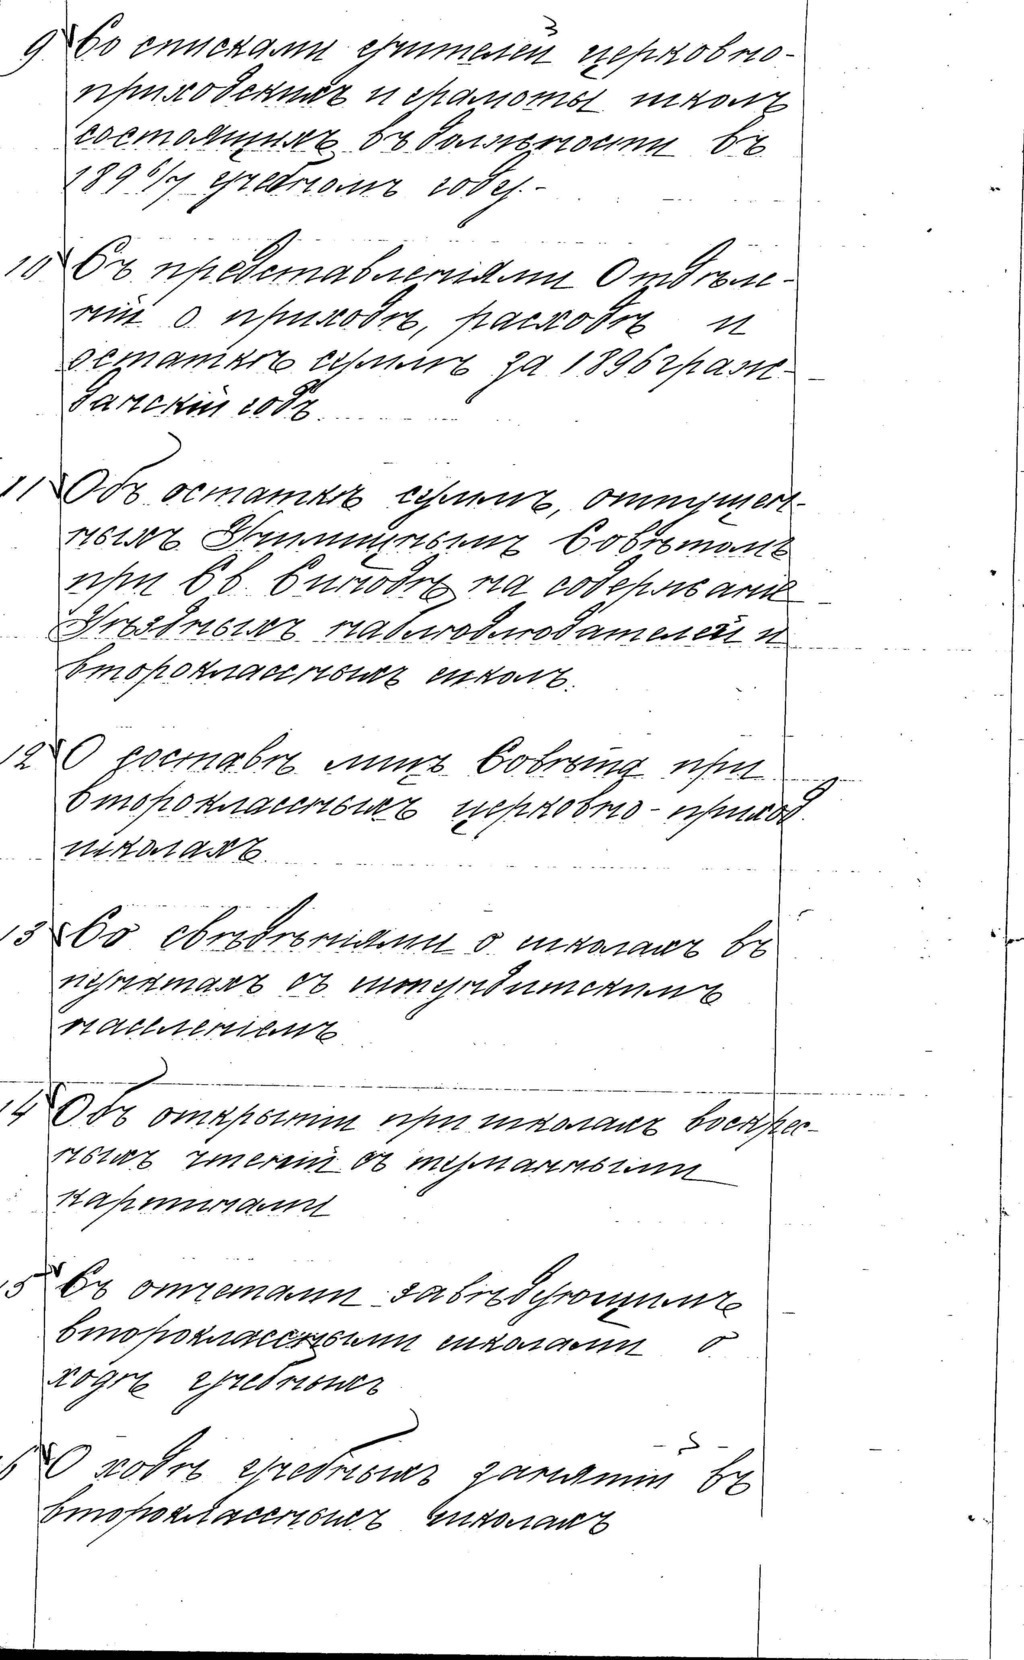 9 Со списками учителей церковно-
приходскихъ и грамоты школъ
состоящихъ въ должности въ
1896/7 учебномъ году.-
10 Съ представленіями Отдѣле-
ній о приходѣ, расходѣ и
остаткѣ суммъ за 1896 граж-
данскій годъ
11 Объ остаткѣ суммъ, отпущен-
ныхъ Училищнымъ Совѣтомъ
при Св. Синодѣ на содержаніе
Уѣздныхъ наблюдлюдателей и
второклассныхъ школъ.
12 О составѣ лицъ Совѣта при
второклассныхъ церковно-приход.
школахъ
13 Со свѣдѣніями о школахъ въ
пунктахъ съ штундитскимъ
населеніемъ
14 Объ открытіи при школахъ воскрес-
ныхъ чтеній съ туманными
картинами
15 Съ отчетами завѣдующимъ
второклассными школами о
ходѣ учебныхъ
6 О ходѣ учебныхъ занятій въ
второклассныхъ школахъ